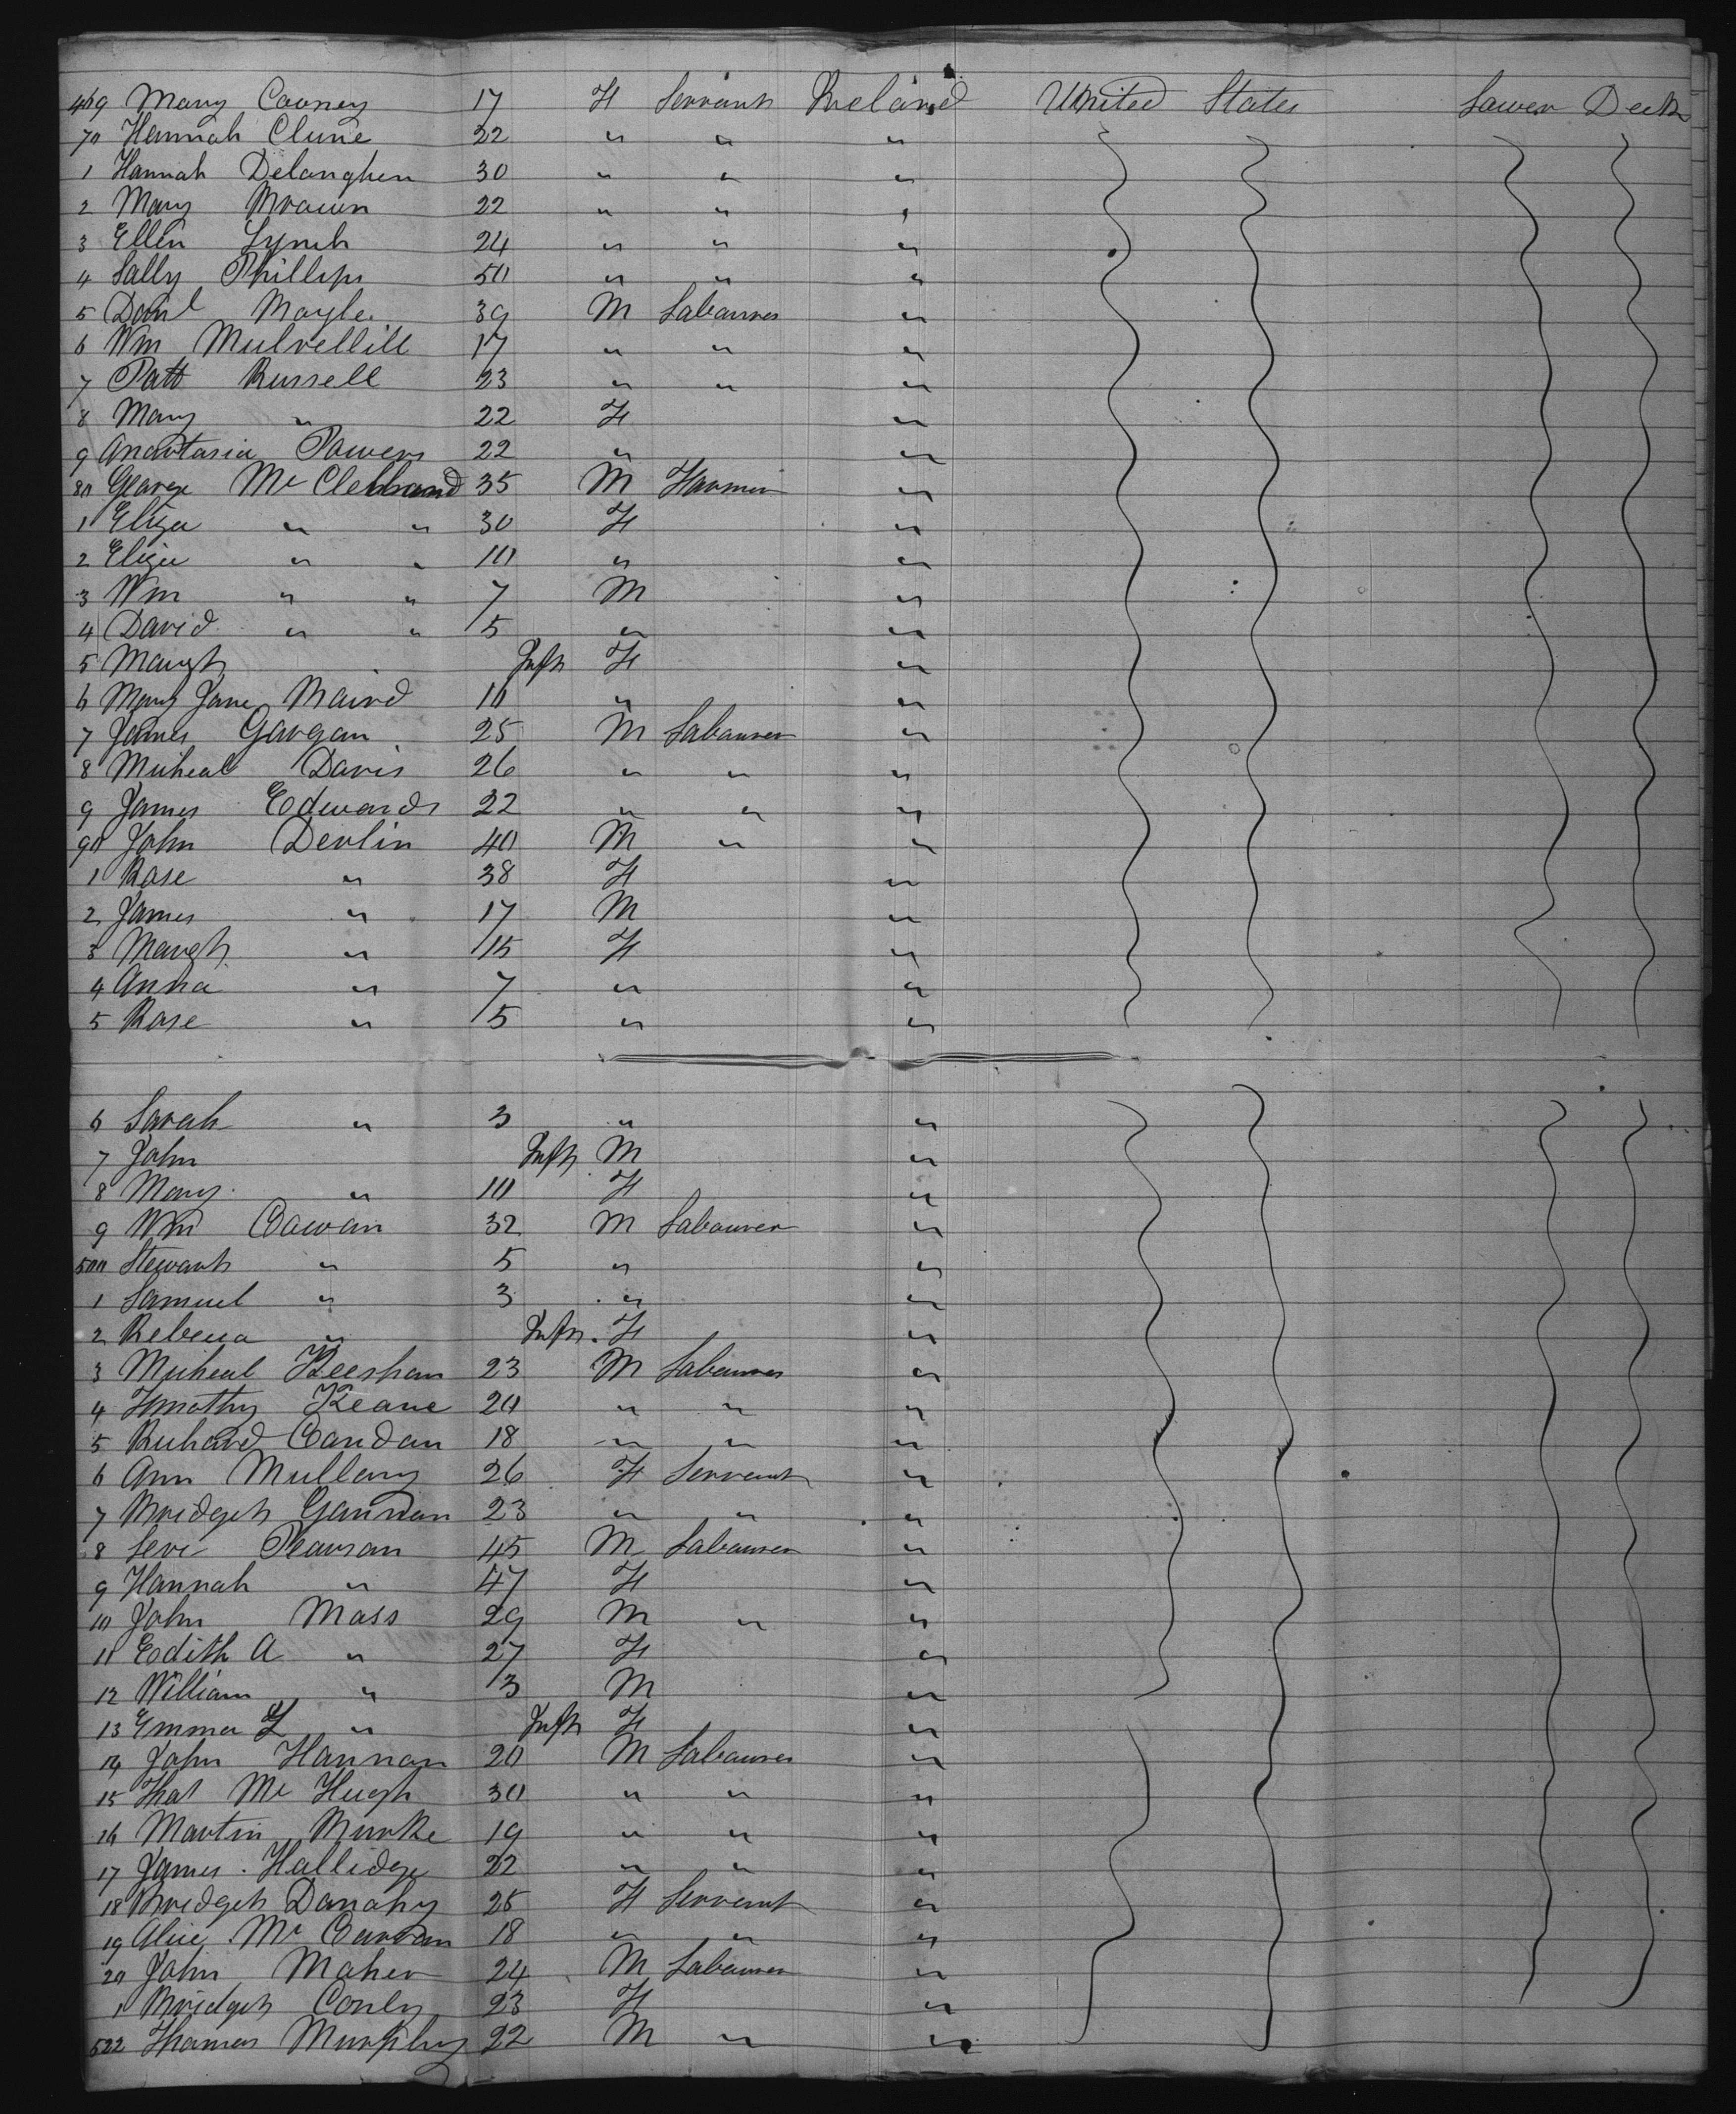 469 Mary Cooney 17 F Servant Ireland United States Lower Deck
70 Hannah Clune 22 " " "
1 Hannah Delanghen 30 " " "
2 Mary Brown 22 " " "
3 Ellen Lynch 24 " " "
4 Sally Phillips 50 " " "
5 Danl Boyle 39 M Labourer "
6 Wm Mulvellill 17 " " "
7 Patt Russell 23 " " "
8 Mary " 22 F "
9 Anastasia Powers 22 " "
80 George Mc Clelland 35 M Farmer "
1 Eliza " " 30 F "
2 Eliza " " 10 " "
3 Wm " " 7 M "
4 David " " 5 " "
5 Margt Inft F "
6 Mary Jane Baird 10 " "
7 James Gargan 25 M Labourer "
8 Micheal Davis 26 " " "
9 James Edwards 22 " " "
90 John Devlin 40 M " "
1 Rose " 38 F "
2 James " 17 M "
3 Margt " 15 F "
4 Anna " 7 " "
5 Rose " 5 " "
6 Sarah " 3 " "
7 John Inft M "
8 Mary " 10 F "
9 Wm Cowan 32 M Labourer "
500 Stewart " 5 " "
1 Samuel " 3 " "
2 Rebecca " Inft F "
3 Micheal Keeshan 23 M Labourer "
4 Timothy Keane 20 " " "
5 Richard Condon 18 " " "
6 Ann Mullany 26 F Servant "
7 Bridget Gannon 23 " " "
8 Levi Pearson 45 M Labourer "
9 Hannah " 47 F "
10 John Moss 29 M " "
11 Edith A " 27 F "
12 William " 3 M "
13 Emma L " Inft F "
14 John Hannan 20 M Labourer "
15 Thos Mc Hugh 30 " " "
16 Martin Burke 19 " " "
17 James Hallidge 22 " " "
18 Bridget Danahy 25 F Servant "
19 Alice Mc 18 " " "
20 John Maher 24 M Labourer "
1 Bridget Conly 23 F "
522 Thomas Murphy 22 M " "